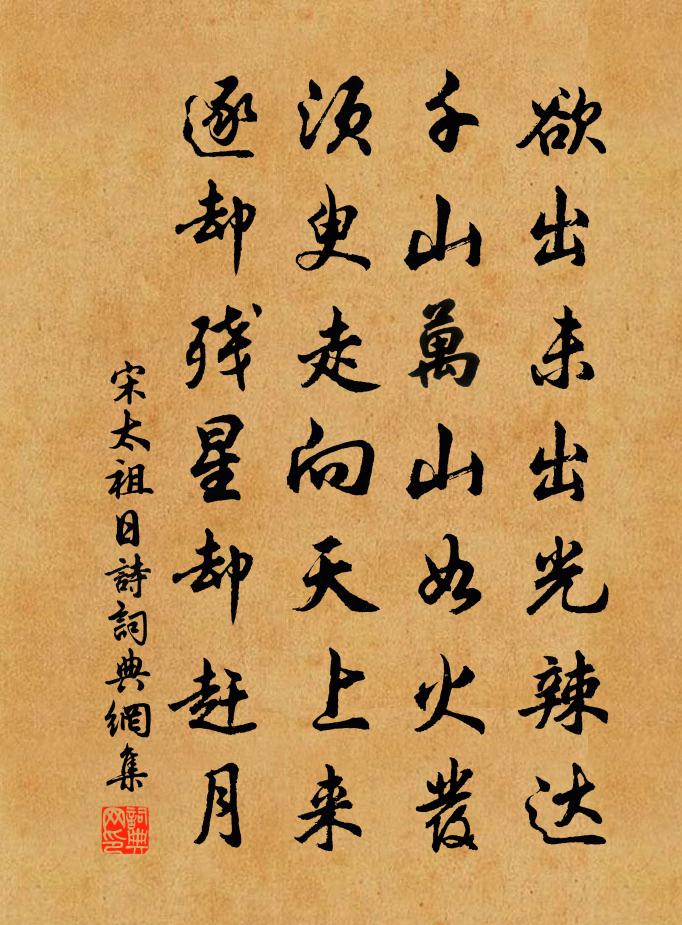 欲出未出光辣达
千山萬山如火發
須臾走向天上来
逐却残星却赶月
宋太祖日詩詞典網集
詞典網印